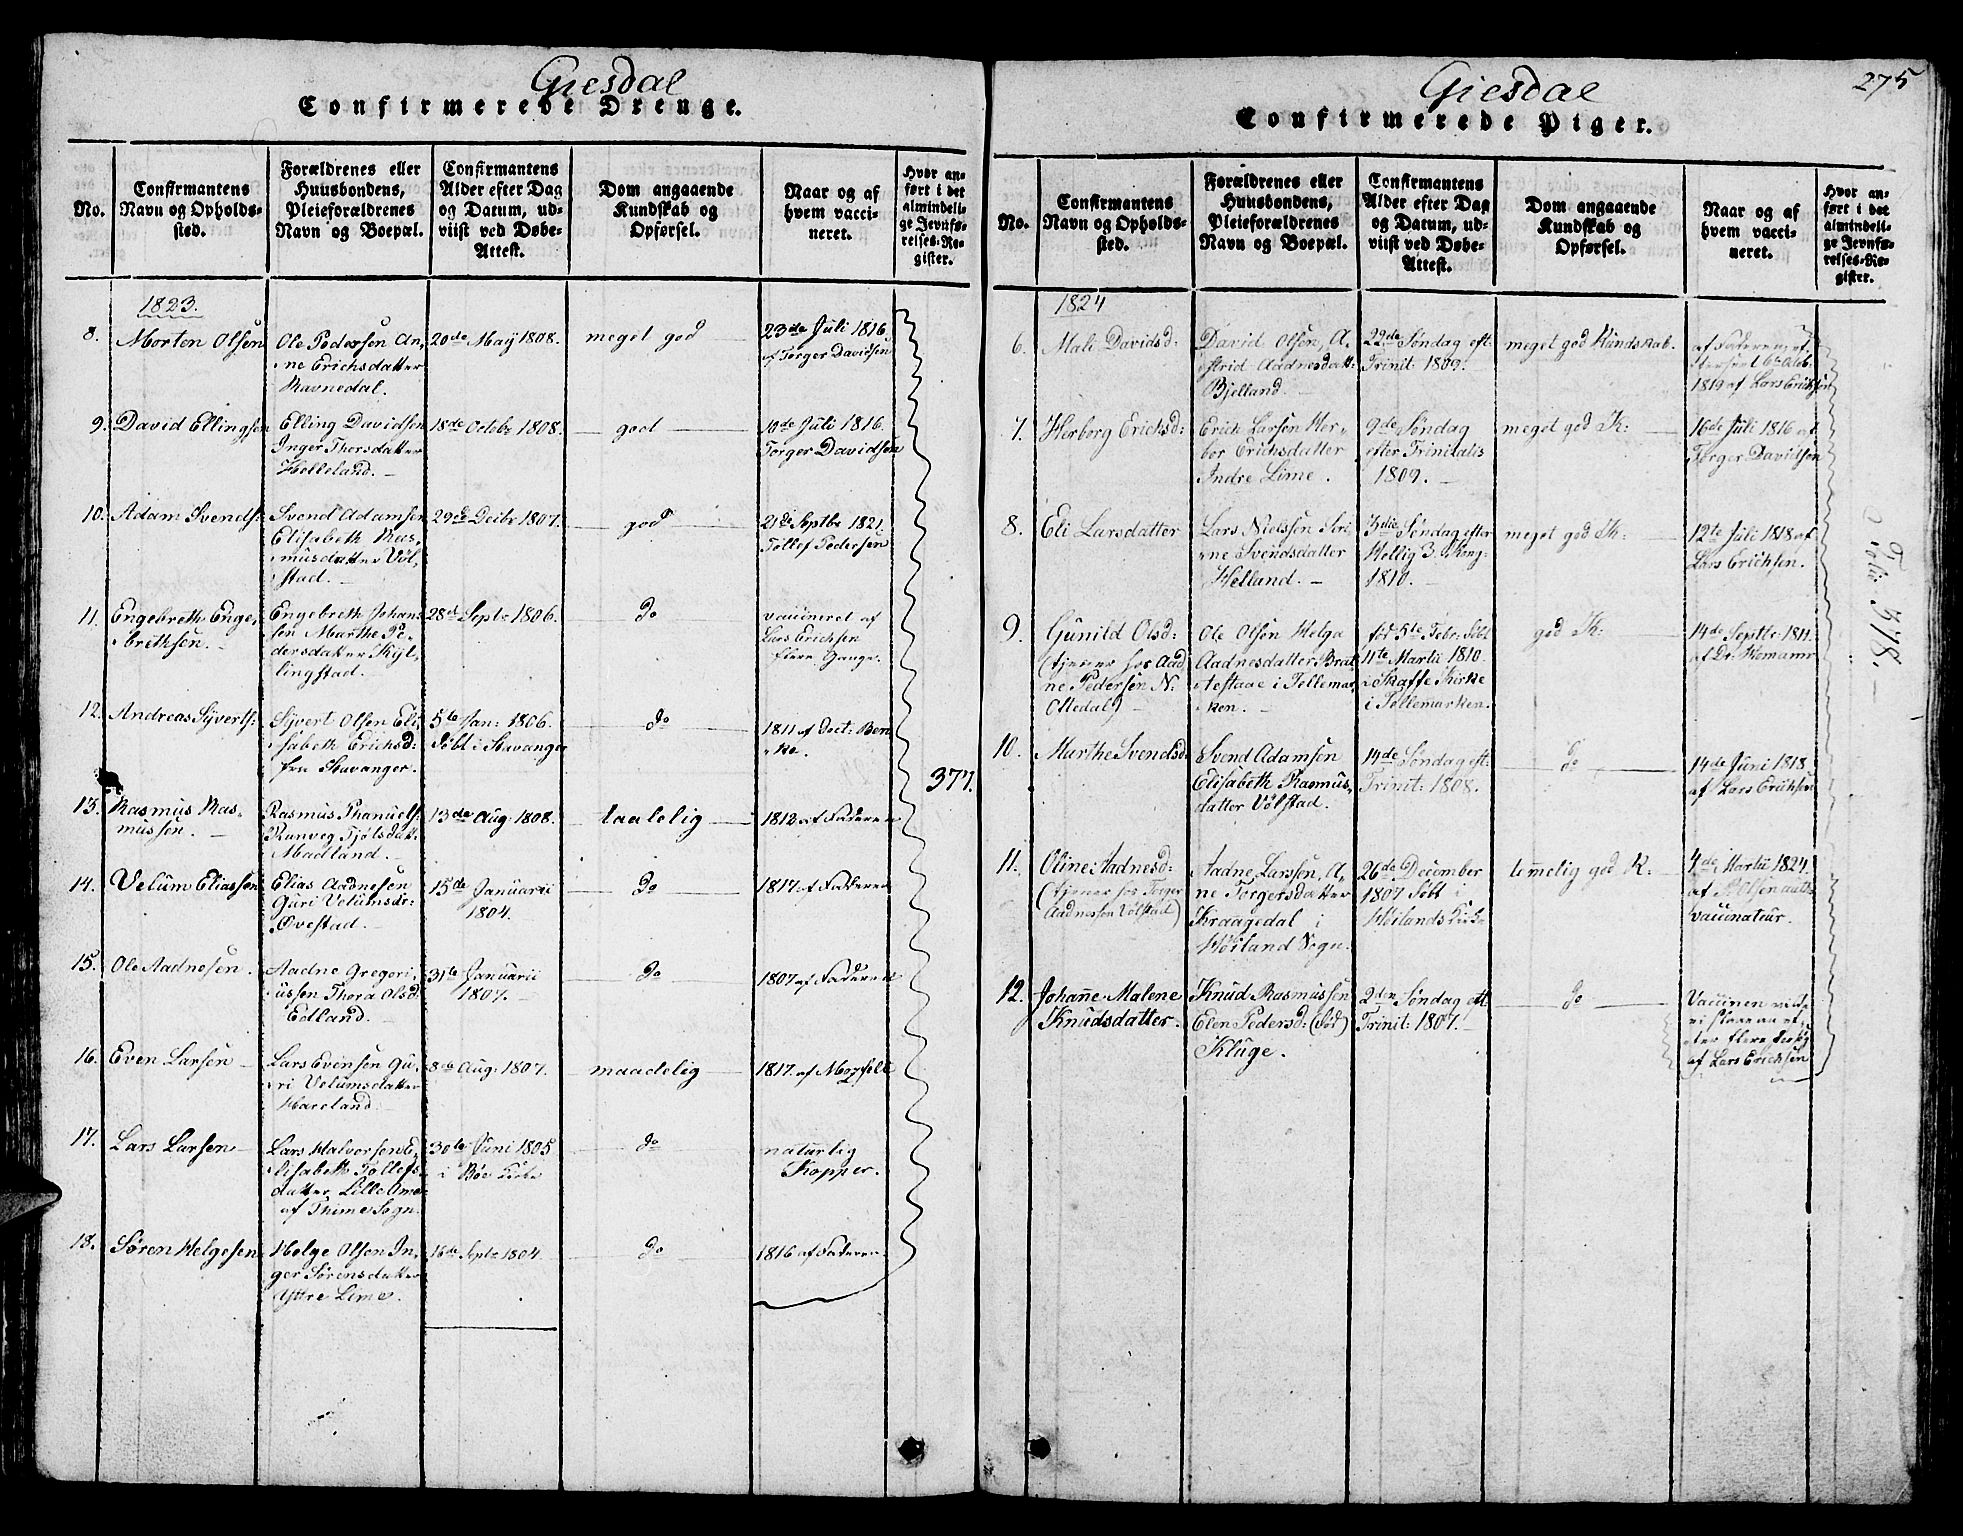 Giesdal
Confirmerede Drenge.
No.
Confirmantens
Navn og Opholds-
sted.
Forældrenes eller
Huusbondens,
Pleieforældrenes
Navn og Boepæl.
Confirmantens
Alder efter Dag
og Datum, ud-
viist ved Døbe-
Attest.
Dom angaaende
Kundskab og
Opførsel.
Naar og af
hvem vacci-
neret.
Hvor an-
ført i det
almindeli-
ge Jevnfø-
relses-Re-
gister.
1823.
8. Morten Olsen
Ole Pedersen An-
ne Erichsdatter
Ravnedal.
20de Maij 1808.
meget god
23de Juli 1816
af Torger Davidsen
9. David Ellingsen
Elling Davidsen
Inger Thorsdatter
Helleland.
18de Octobr 1808.
god
10de Juli 1816.
Torger Davidsen
10. Adam Svends:
Svend Adamsen
Elisabeth Ras-
musdatter Vøl-
stad.
29de Deibr 1807.
god
21de Septbr 1821.
Tollef Pedersen
11. Engebreth Enge-
brethsen.
Engebreth Johan-
sen Marthe Pe-
dersdatter Kyl-
lingstad.
28de Septr 1806.
do
vaccineret af
Lars Erichsen
flere Gange.
12. Andreas Sijverts:
Sijvert Olsen Eli-
sabeth Erichsd:
fra Stavanger.
5te Jan: 1806.
døbt i Stavanger
do
1811 af Doct: Ben
ke.
377.
13. Rasmus Ras-
mussen.
Rasmus Phanuels:
Ranveg Tjølsdatt:
Madland.
13de Aug: 1808.
taalelig
1812 af Faderen
14. Velum Eliassen
Elias Aadnesen
Guri Velumsdr
Øvestad.
15de Januarii
1804.
do
1817 af Faderen
15. Ole Aadnesen.
Aadne Gregori-
ussen Thora Olsd:
Edland.
31te Januarii
1807.
do
1807 af Faderen
16. Even Larsen
Lars Evensen Gu-
ri Velumsdatter
Haveland.
8de Aug: 1807.
maadelig
1817. af
17. Lars Larsen
Lars Halvorsen E-
lisabeth Tollefs-
datter Lille
af Thime Sogn.
30te Juni 1805
i Bøe Kirke
do
naturlig
Kopper.
18. Søren Helgesen
Helge Olsen In-
ger Sørensdatter
Yttre Lime.
16de Septr 1804.
do
1816 af Faderen
275
Giesdal
Confirmerede Piger.
No.
Confirmantens
Navn og Opholds-
sted.
Forældrenes eller
Huusbondens,
Pleieforældrenes
Navn og Boepæl.
Confirmantens
Alder efter Dag
og Datum, ud-
viist ved Døbe-
Attest.
Dom angaaende
Kundskab og
Opførsel.
Naar og af
hvem vacci-
neret.
Hvor an-
ført i det
almindeli-
ge Jevnfø-
relses-Re-
gister.
1824
6. Mali Davidsd:
David Olsen, A-
strid Aadnesdatt:
Bjelland.
22de Søndag eft.
Trinit: 1809.
meget god Kundskab.
af Faderen,
1819 af Lars Erichsen
7. Herborg Ericksd:
Erick Larsen Her-
bor Erichsdatter
Indre Lime.
9de Søndag
efter Trinitatis
1809.
meget god K:
16de Juli 1816 af
Torger Davidsen
8. Eli Larsdatter
Lars Nielssen Siri-
ne Svendsdatter
Helland.
3die Søndag efter
Hellig 3 Kong:
1810.
meget god K:
12te Juli 1818 af
Lars Erichsen.
Folio 378.
9. Gunild Olsd:
(tjener hos Aad
ne Pedersen N:
Oltedal)
Ole Olsøn Helga
Aadnesdatter Brat
testaae i Tellemar-
ken.
fød 5te Febr: døbt
11te Martii 1810.
i Skaffe Kirke
i Tellemarken.
god K:
14de Septbr: 1811.
af Dr:
10. Marthe Svendsd:
Svend Adamsen
Elisabeth Rasmus-
datter Vølstad.
14de Søndag eft.
Trinit: 1808.
do
14de Juni 1818
af Lars Erichsen
11. Oline Aadnesd:
(tjener hos Torger
Aadnessen Vølstad)
Aadne Larsen, A-
ne Torgersdatter
Kraagedal i
Høiland Sogn.
26de December
1807 døbt i
Høilands Kirke
temelig god K:
4de Martii 1824
af Olsen auth:
vaccinateur.
12. Johanne Malene
Knudsdatter.
Knud Rasmussen
Elen Pedersd: (død)
Kluge.
2den Søndag eft
Trinit: 1807.
do
Vaccinen vilde
ei slaae an ef-
ter flere
af Lars Erichsen